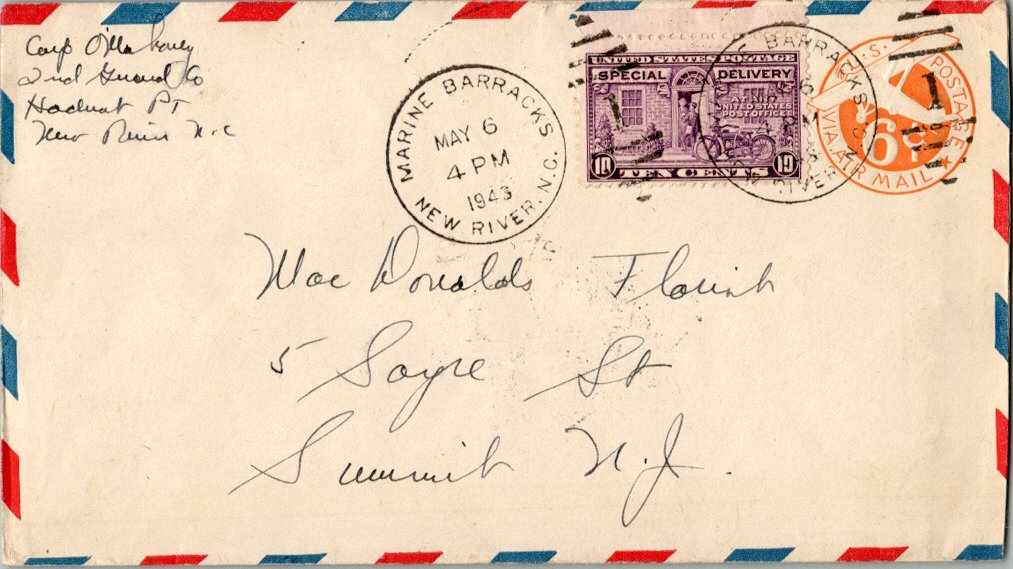 Corp O'Mahoney
2nd Guard Co
Hadnot Pt
New River N.C
MARINE BARRACKS
MAY 6
4 PM
1943
NEW RIVER, N.C.
UNITED STATES POSTAGE
SPECIAL DELIVERY
AT ANY
UNITED STATES
POST OFFICE
10 TEN CENTS 10
BARRACKS
RIVER
U.S. POSTAGE
6¢
VIA AIR MAIL
1
1
MacDonalds Florist
5 Sayre St
Summit N.J.